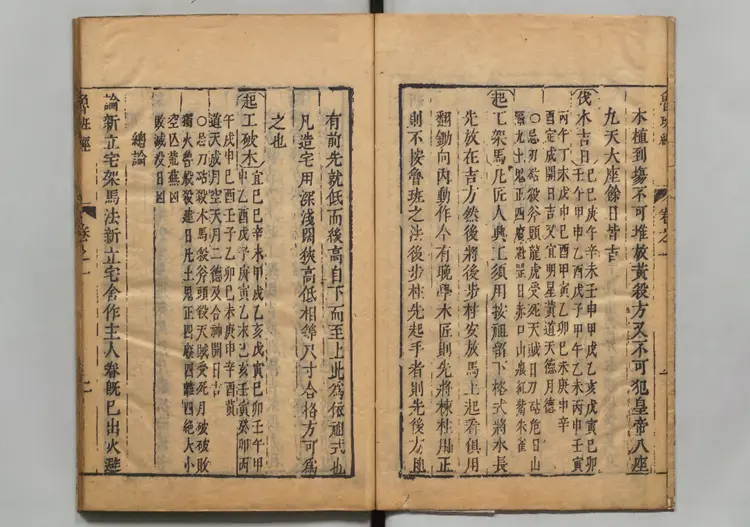 魯班經
卷之一
木植到塲不可堆放黃殺方又不可犯皇帝八座
九天大座餘日皆吉
伐木吉日
己巳庚午辛未壬申甲戌乙亥戊寅己卯
壬午甲申乙酉戊子甲午乙未丙申壬寅
丙午丁未戊申己酉甲寅乙卯己未庚申辛
酉定成開日吉又宜明星黃道天德月德
○忌刃砧殺斧頭龍虎受死天賊日刀砧危日山
隔九土鬼正四廢魁罡日赤口山紅觜朱雀
起工架馬凡匠人興工須用按祖留下格式將水長
先放在吉方然後將後步柱安放馬上起看俱用
翻鋤向內動作今有晚學木匠則先將棟柱用正
則不按魯班之法後步柱先起手者則先後方且
有前先就低而後高自下而至上此為依祖式也
凡造宅用深淺闊狹高低相等尺寸合格方可為
之也
起工破木
宜己巳辛未甲戌乙亥戊寅己卯壬午甲
申乙酉戊子庚寅乙未己亥壬寅癸卯丙
午戊申己酉壬子乙卯己未庚申辛酉黃
道天成月空天月二德及合神開日吉
○忌刀砧殺木馬殺斧頭殺天賊受死月破破敗
獨火魯般殺建日九土鬼正四廢四離四絕大小
空凶荒蕪凶
敗滅没日凶
總論
論新立宅架馬法新立宅舍作主人眷既已出火避
魯班經
卷之一
二